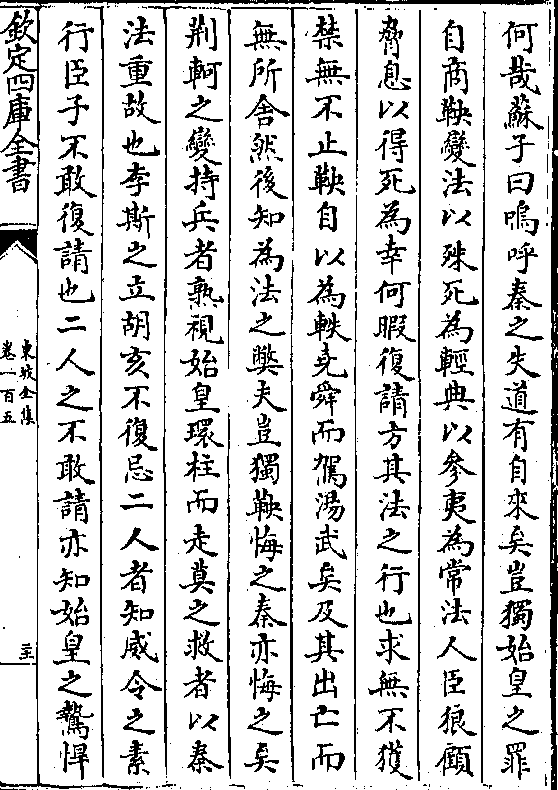 何哉蘇子曰嗚呼秦之失道有自來矣豈獨始皇之罪
自商鞅變法以殊死為輕典以參夷為常法人臣狼顧
脅息以得死為幸何暇復請方其法之行也求無不獲
禁無不止鞅自以為軼堯舜而駕湯武矣及其出亡而
無所舍然後知為法之弊夫豈獨鞅悔之秦亦悔之矣
荆軻之變持兵者熟視始皇環柱而走莫之救者以秦
法重故也李斯之立胡亥不復忌二人者知威令之素
行臣子不敢復請也二人之不敢請亦知始皇之鷙悍
欽定四庫全書
東坡全集
卷一百五